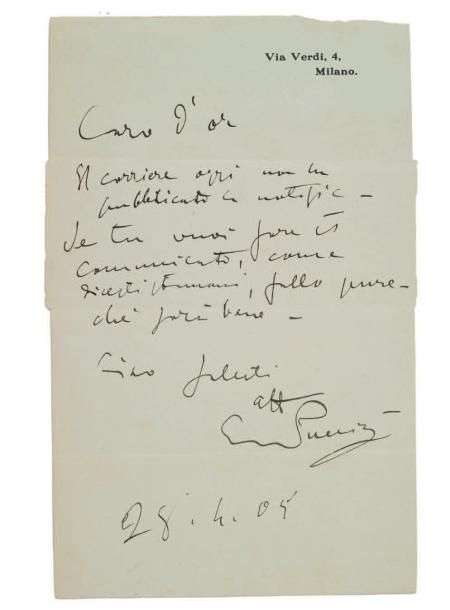 Via Verdi, 4,
Milano.
Caro D'or
Il corriere oggi non ha
pubblicato la notifica –
Se tu vuoi fare il
comunicato, come
dicesti stamani, fallo pure –
che farà bene –
Ciao saluti
aff
Puccini
28.4.05